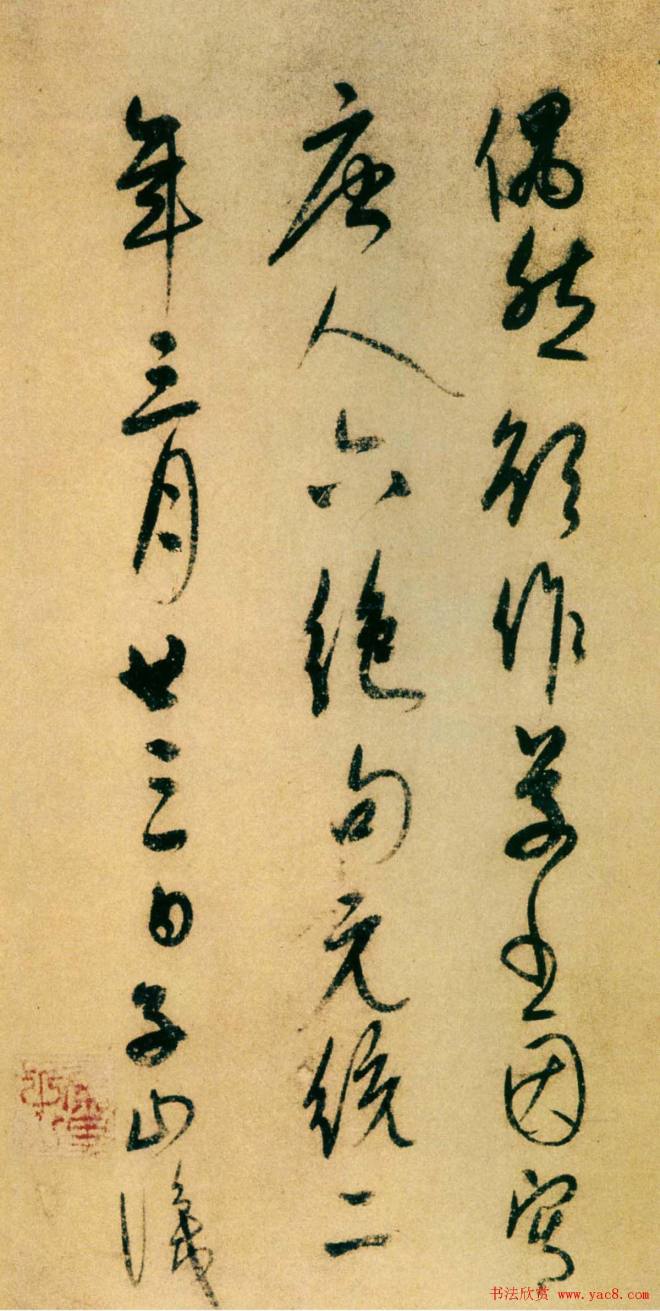 偶然欲作草书因写
唐人六绝句元统二
年三月廿三日子山识
书法欣赏 www.yac8.com